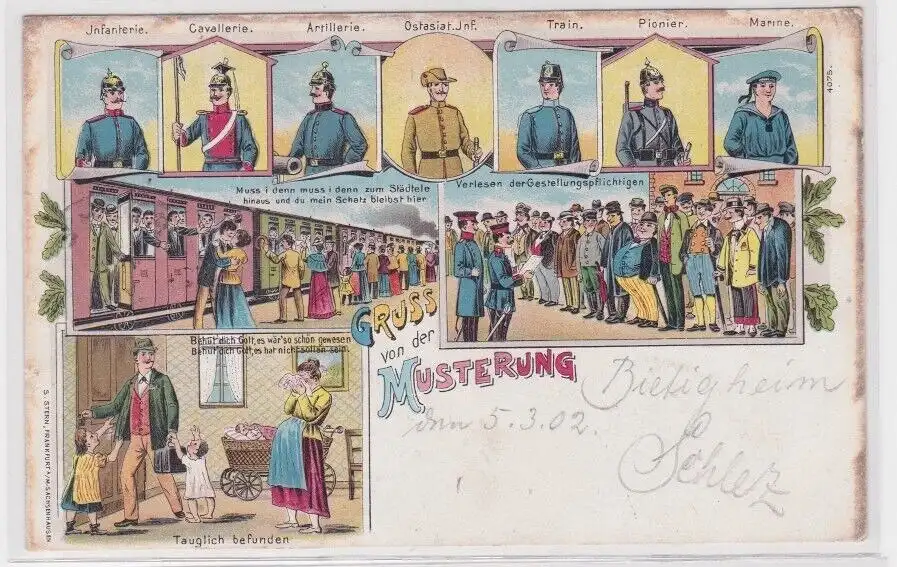 Jnfanterie. Cavallerie. Artillerie. Ostasiat. Jnf. Train. Pionier. Marine.
4075.
Muss i denn muss i denn zum Städtele
hinaus und du mein Schatz bleibst hier
Verlesen der Gestellungspflichtigen
GRUSS
von der
MUSTERUNG
Behüt dich Gott, es wär' so schön gewesen
Behüt dich Gott, es hat nicht sollen sein.
Tauglich befunden
S. STERN, FRANKFURT A/M-SACHSENHAUSEN
Bietigheim
den 5.3.02.
Schlez